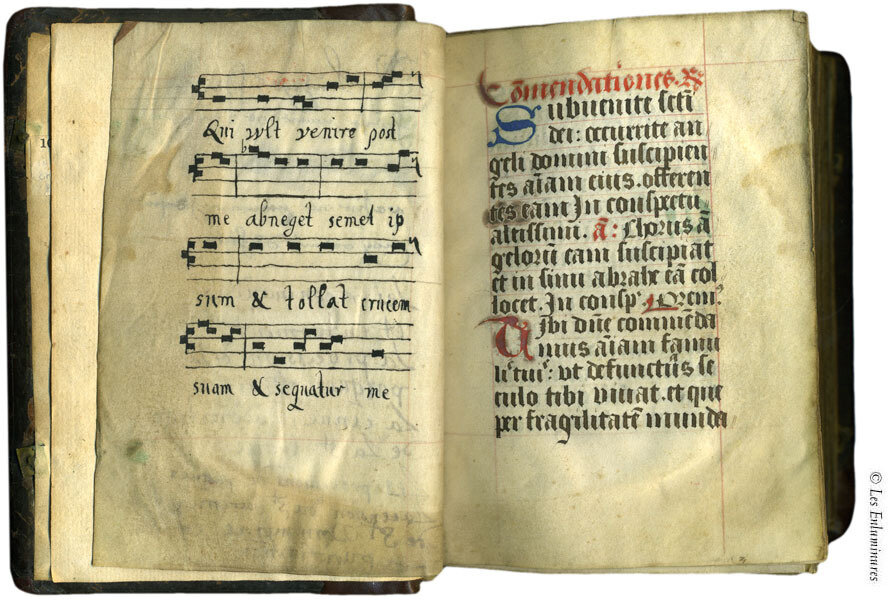 Qui vult venire post
me abneget semet ip
sum & tollat crucem
suam & sequatur me
Co͞mendationes. R͞
Subuenite sc͞ti
dei: occurrite an
geli domini suscipien
tes ai͞am eius. offeren
tes eam In conspectu
altissimi. a͞: Chorus a͞
geloru͞ eam suscipiat
et in sinu abrahe ea͞ col
locet. In consp. Orem᷒
Tibi dn͞e comme͞da
mus ai͞am famu
li tui: vt defunctus se
culo tibi viuat. et que
per fragilitate͞ munda
© Les Enluminures